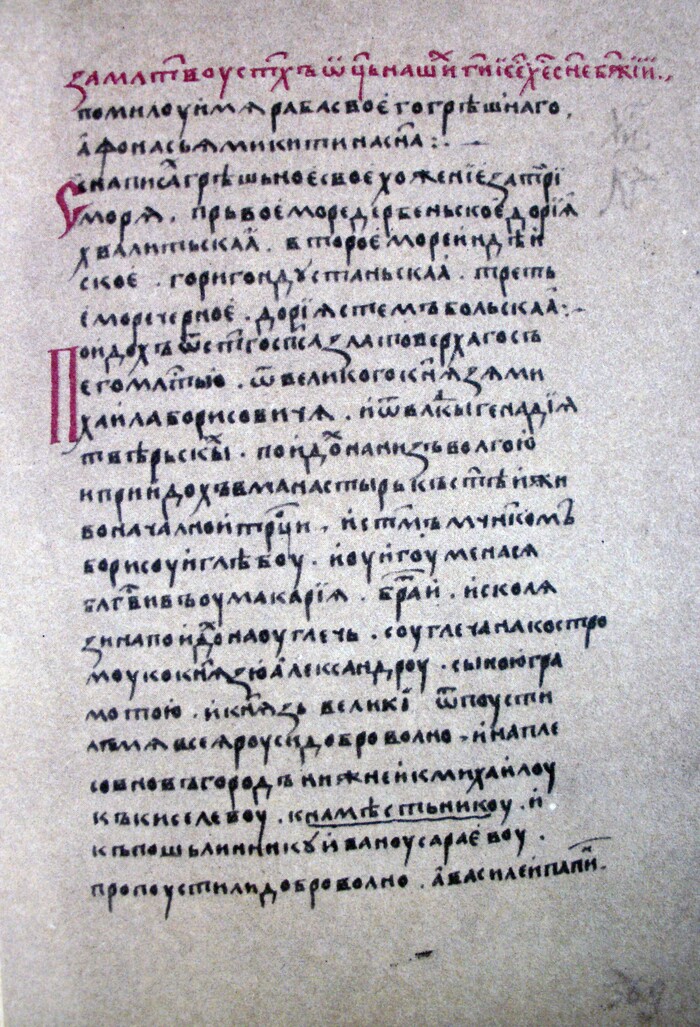 за млт҃въ оустх҃ъ ѿ ц҃ь наши г҃и іс҃е х҃е сн҃е бж҃ій.,
помилоуй мѧ раба своего грѣшнаго,
афонасьѧ микитина сн҃а :. —
Се написа грѣшьное свое хоженіе за три
морѧ . прьвое море дербеньское дорїа
хвалитьскаа . второе море индѣй
ское . гори гондустаньскаа . треть
е море черное . дорїѧ стемъбольскаа :-
Поидохъ ѿ ст҃го сп҃са златоверхаго съ
его млт҃ью . ѿ великого кнѧзѧ ми
хаила борисовичѧ . и ѿ влкы генадїа
твѣрьскы . поидо на низъ волгою
и приидохъ в манастырь къ ст҃ѣй жи
воначалной трц҃и . и ст҃мъ мч҃нкомъ
борисоу и глѣбоу . и оу игоумена сѧ
блг҃вивъ оу макарїа . братїи . и с колѧ
зина поидо на оуглечь . с оуглеча на костро
моу ко кнѧзю александроу . с ыною гра
мотою . и кнѧзь великї ѿпоусти
лъ мѧ всеѧ роуси доброволно . и на пле
со в новъгородъ нижней к михайлоу
къ киселевоу . к намѣстьникоу . и
къ пошьлиннику иваноу сараевоу .
пропоустили доброволно . а василей папи
369